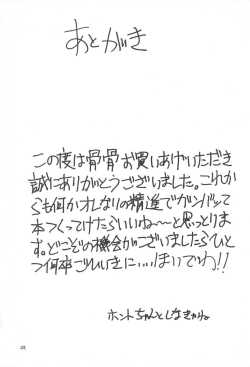 あとがき
この度は骨骨お買いあげいただき
誠にありがとうございました。これか
らも何かオレなりの精進でガンバッて
本つくってけたらいいね〜〜と思っとりま
す。どこぞの機会がございましたらひと
つ何卒ごひいきに……ほいでわ!!
ホントちゃんとしなきゃね。